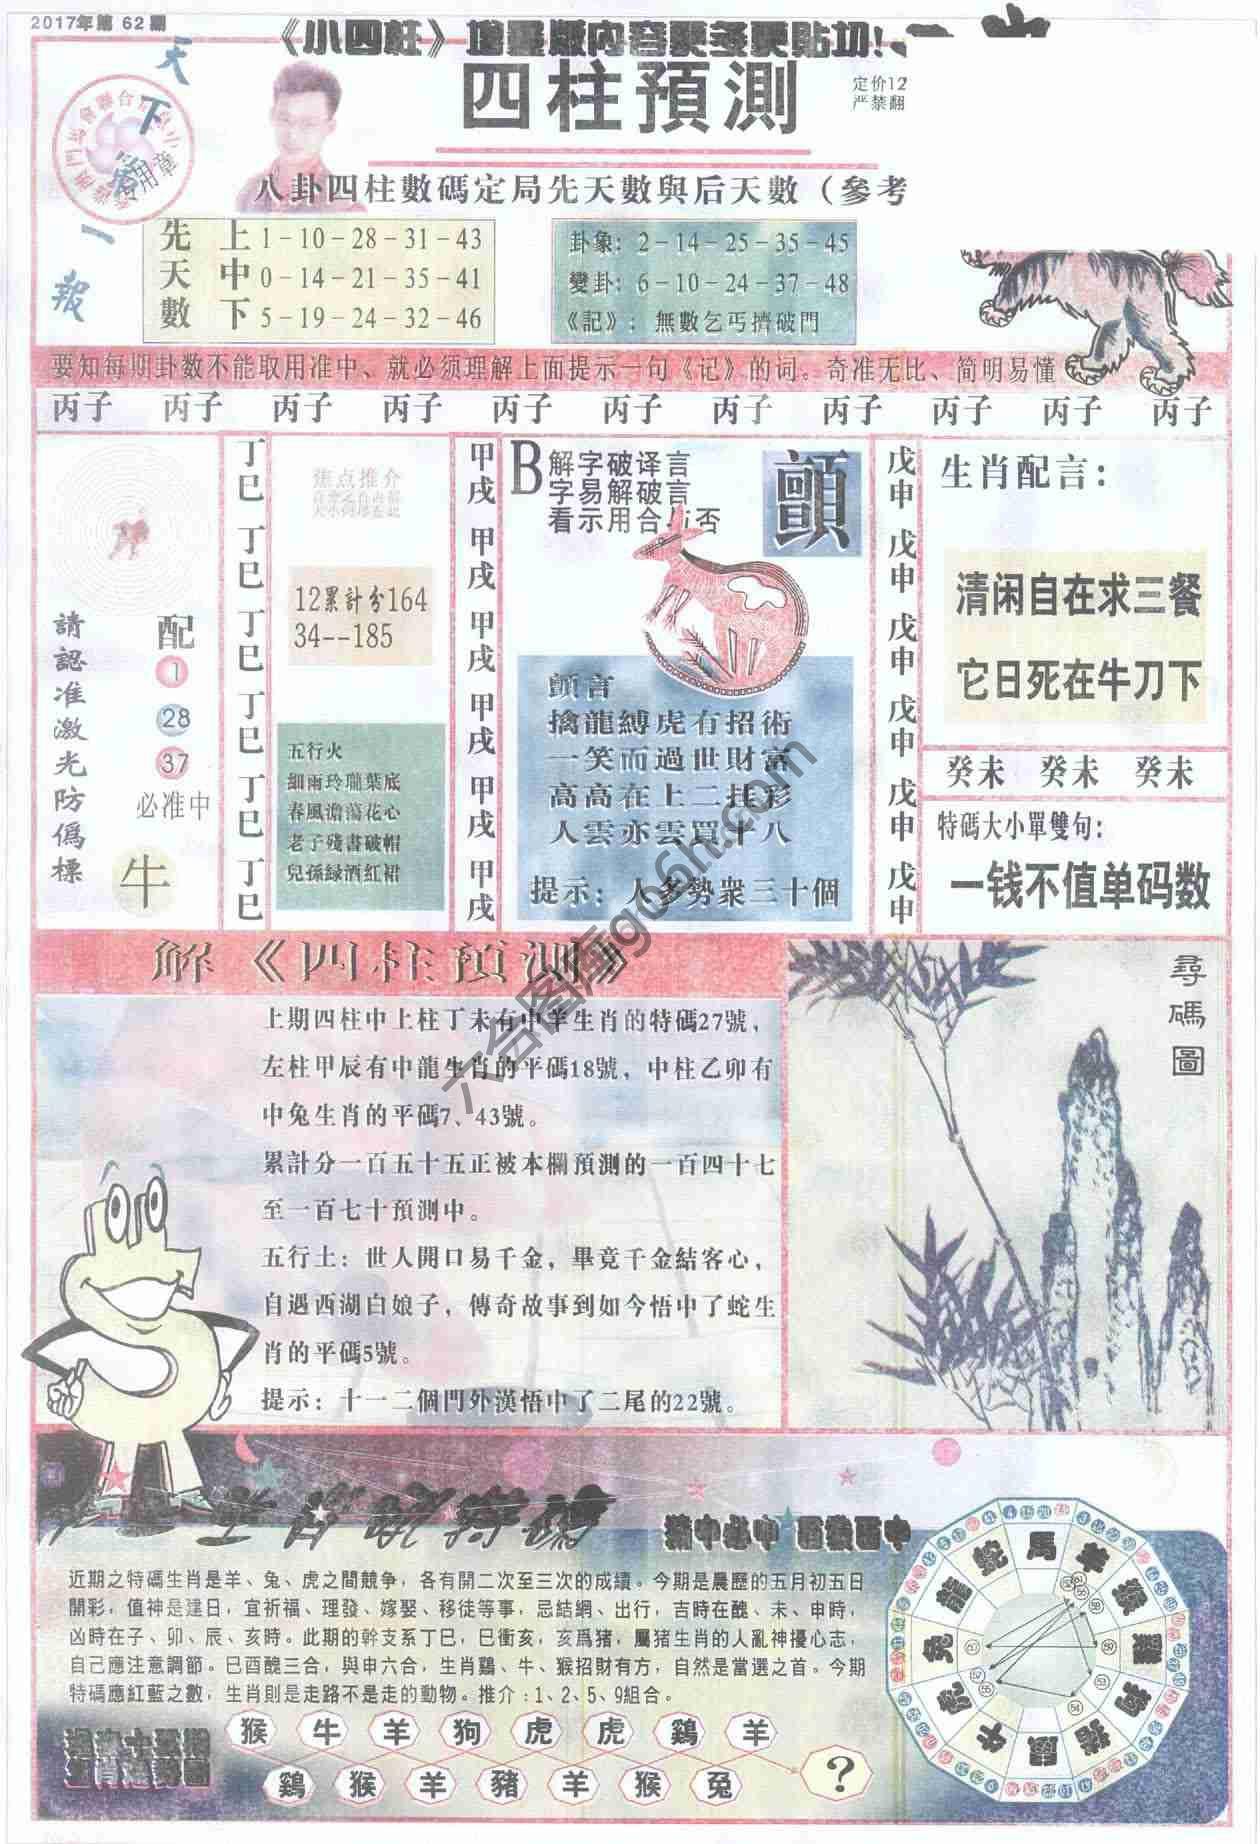 2017年第 62 期
天下第一報
《小四柱》增量版内容更多更贴切!
四柱預測
定价12
严禁翻
八卦四柱數碼定局先天數與后天數（參考
先天數
上 1－10－28－31－43
中 0－14－21－35－41
下 5－19－24－32－46
卦象: 2－14－25－35－45
變卦: 6－10－24－37－48
《記》: 無數乞丐擠破門
要知每期卦数不能取用准中、就必须理解上面提示一句《记》的词。奇准无比、简明易懂
丙子 丙子 丙子 丙子 丙子 丙子 丙子 丙子 丙子 丙子 丙子
請認准激光防僞標
配
1
28
37
必准中
牛
丁巳 丁巳 丁巳 丁巳 丁巳 丁巳
焦点推介
12累計分164
34--185
五行火
細雨玲瓏葉底
春風澹蕩花心
老子殘書破帽
兒孫緑酒紅裙
甲戌 甲戌 甲戌 甲戌 甲戌 甲戌
B
解字破译言
字易解破言
看示用合与否
顫
顫言
擒龍縛虎有招術
一笑而過世財富
高高在上二挂彩
人雲亦雲買十八
提示: 人多勢衆三十個
戊申 戊申 戊申 戊申 戊申 戊申
生肖配言:
清闲自在求三餐
它日死在牛刀下
癸未 癸未 癸未
特碼大小單雙句:
一钱不值单码数
解《四柱預測》
上期四柱中上柱丁未有中羊生肖的特碼27號，
左柱甲辰有中龍生肖的平碼18號，中柱乙卯有
中兔生肖的平碼7、43號。
累計分一百五十五正被本欄預測的一百四十七
至一百七十預測中。
五行土: 世人開口易千金，畢竟千金結客心，
自遇西湖白娘子，傳奇故事到如今悟中了蛇生
肖的平碼5號。
提示: 十一二個門外漢悟中了二尾的22號。
尋碼圖
近期之特碼生肖是羊、兔、虎之間競争，各有開二次至三次的成績。今期是農歷的五月初五日
開彩，值神是建日，宜祈福、理發、嫁娶、移徒等事，忌結網、出行，吉時在醜、未、申時，
凶時在子、卯、辰、亥時。此期的幹支系丁巳，巳衝亥，亥爲猪，屬猪生肖的人亂神擾心志，
自己應注意調節。巳酉醜三合，與申六合，生肖鷄、牛、猴招財有方，自然是當選之首。今期
特碼應紅藍之數，生肖則是走路不是走的動物。推介:1、2、5、9組合。
猴 牛 羊 狗 虎 虎 鷄 羊
鷄 猴 羊 豬 羊 猴 兔
?
馬 羊 猴 鷄 狗 猪 鼠 牛 虎 兔 龍 蛇
六合图库g66h.com